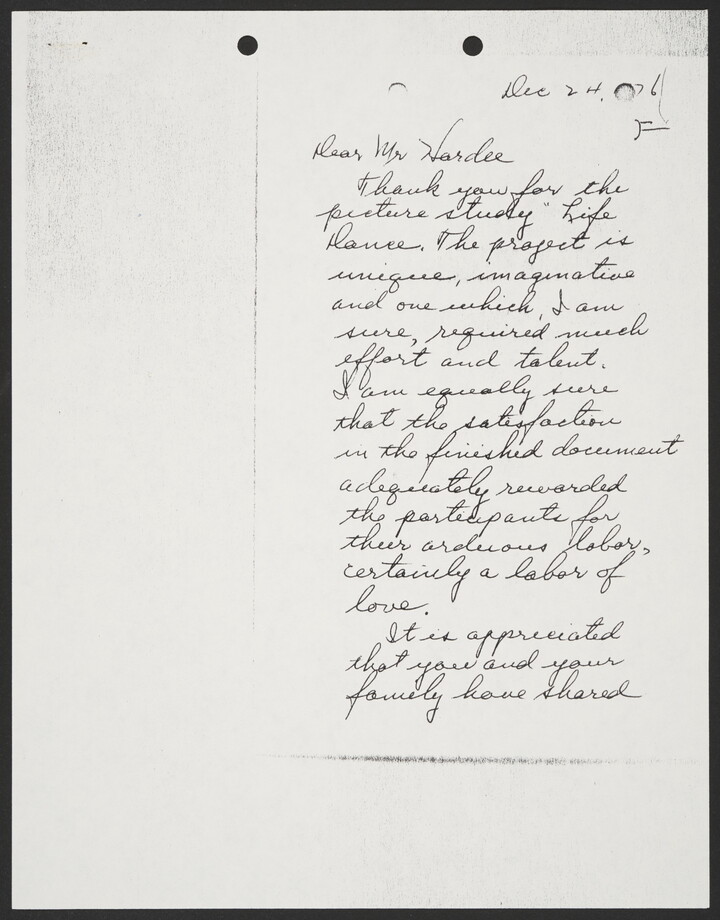 Dec 24, 76
Dear Mr Hardee
Thank you for the
picture study "Life
Dance. The project is
unique, imaginative
and one which, I am
sure, required much
effort and talent.
I am equally sure
that the satisfaction
in the finished document
adequately rewarded
the participants for
their arduous labor,
certainly a labor of
love.
It is appreciated
that you and your
family have shared